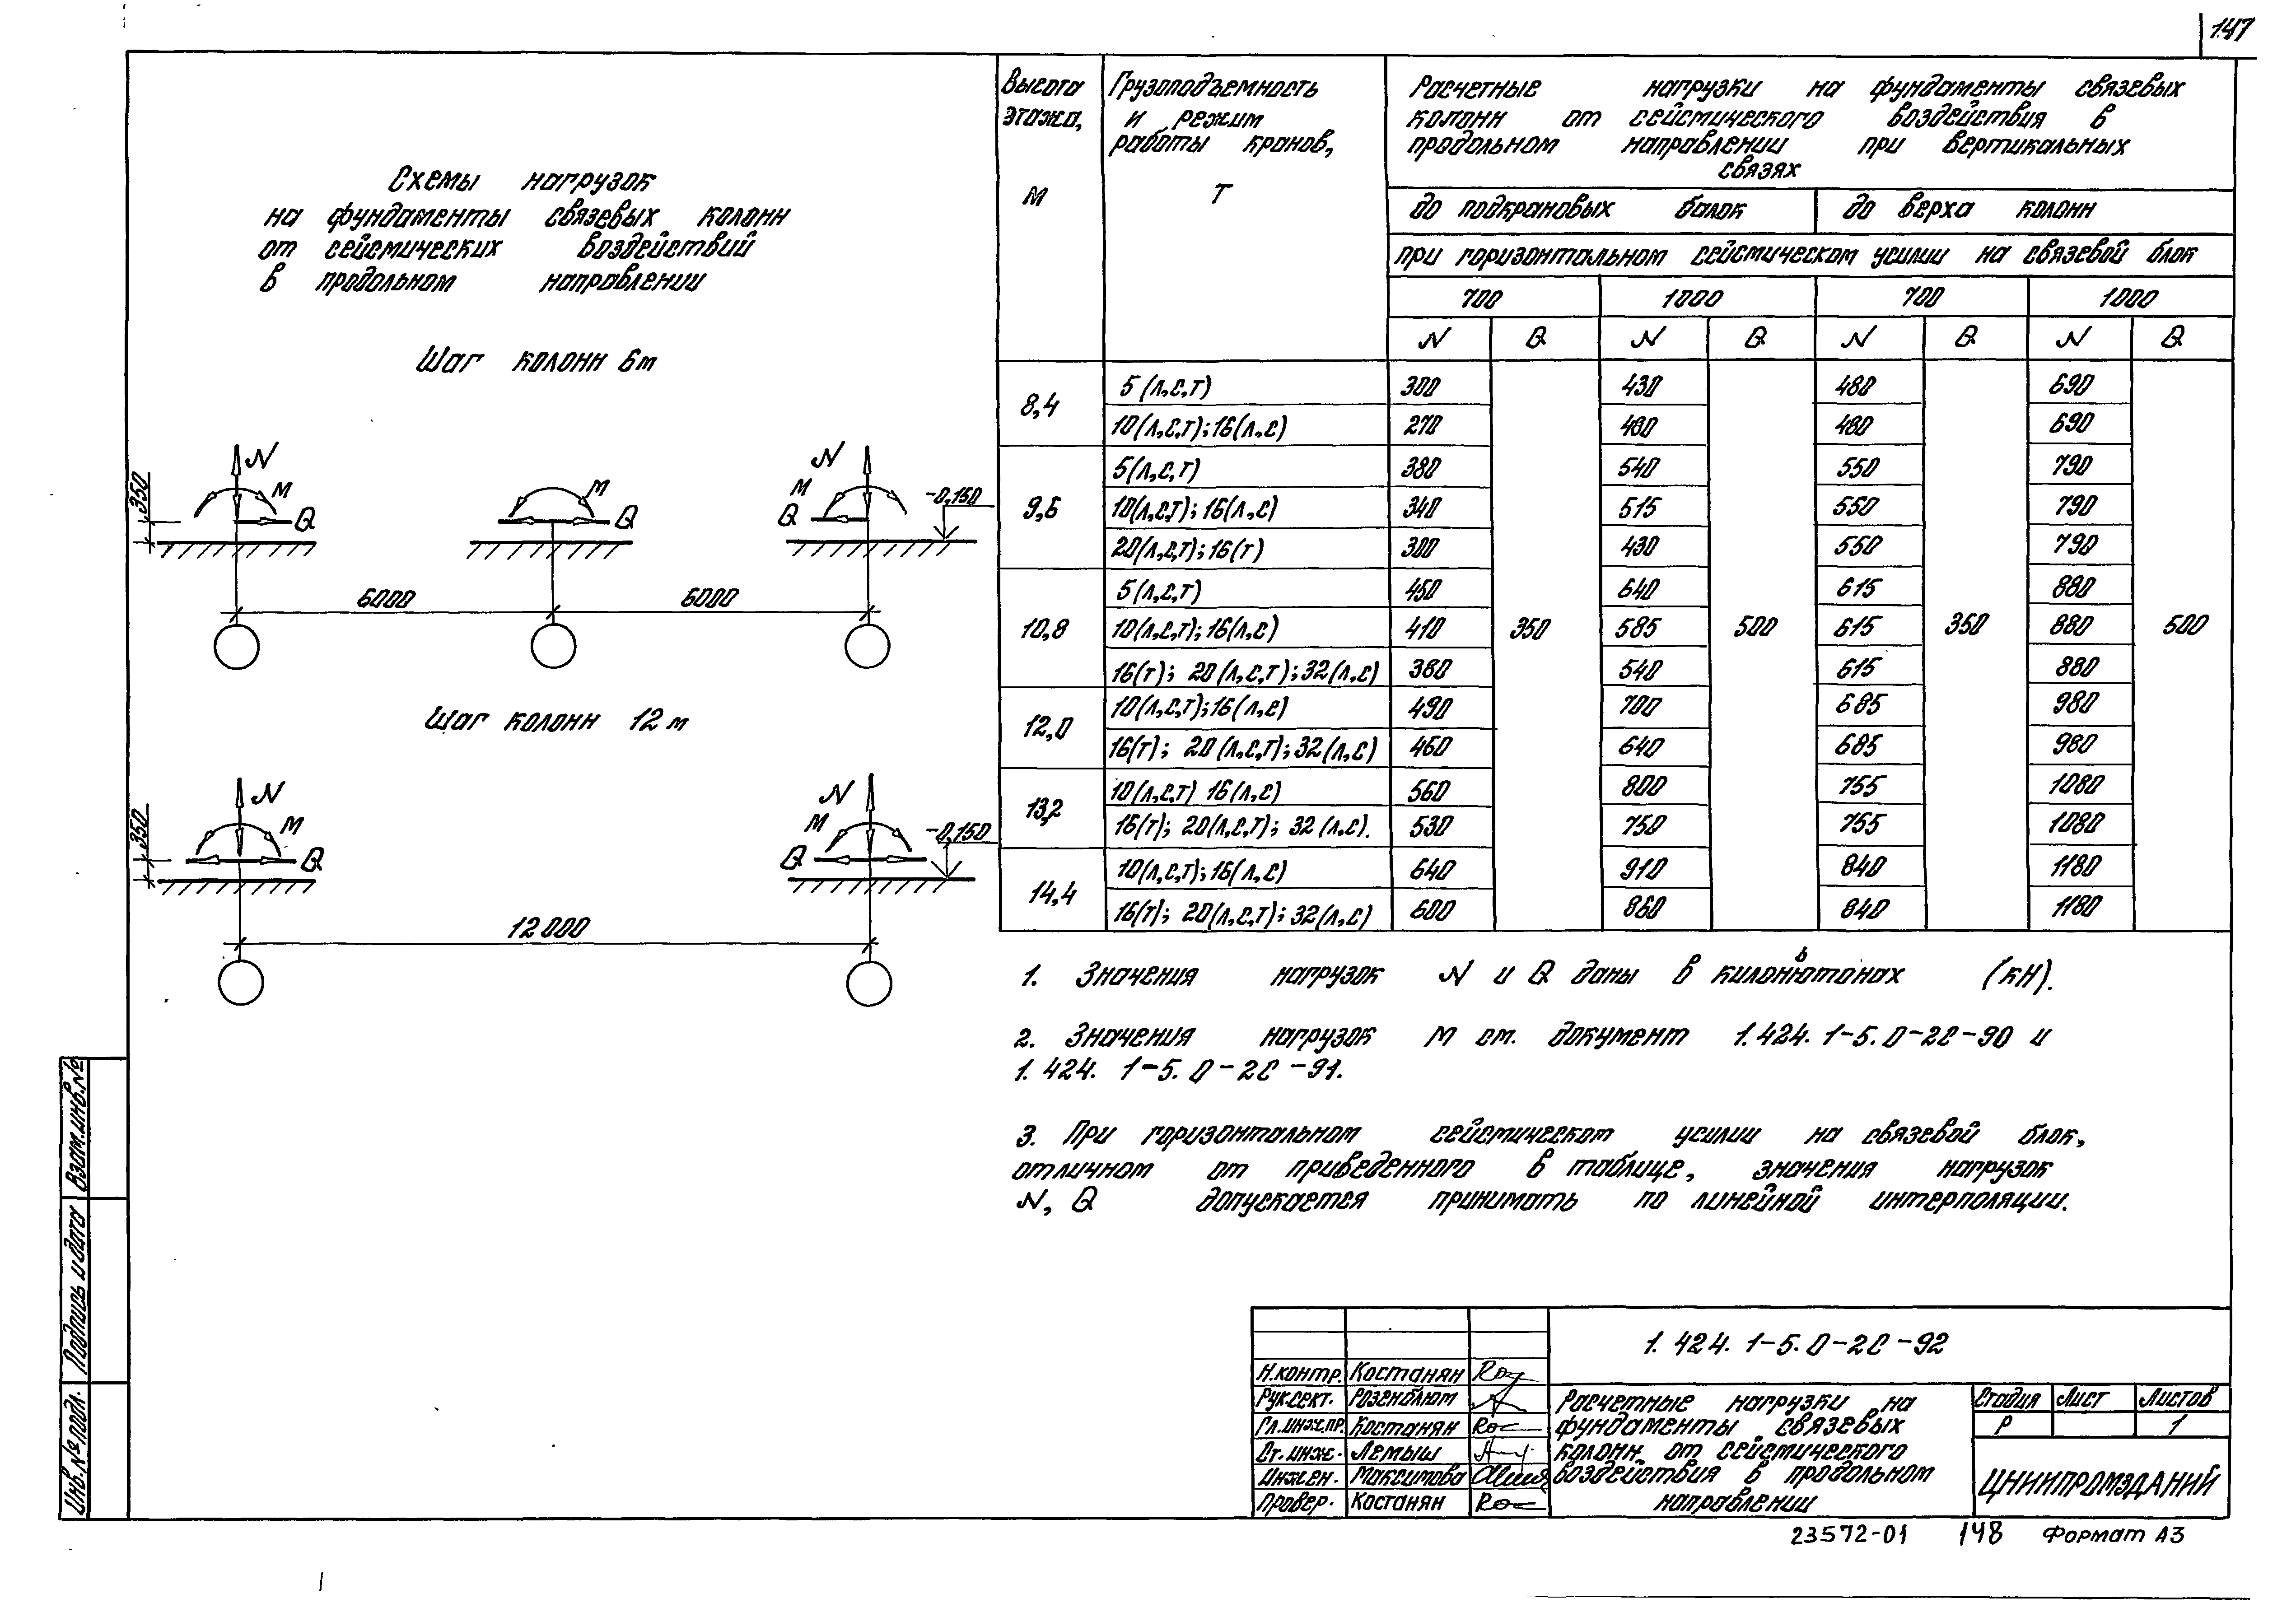 147
Схемы нагрузок
на фундаменты связевых колонн
от сейсмических воздействий
в продольном направлении
Шаг колонн 6м
N M Q 350
M Q
N M Q -0,150
6000 6000
Шаг колонн 12 м
N M Q 350
N M Q -0,150
12000
Высота этажа, М
Грузоподъемность и режим работы кранов, Т
Расчетные нагрузки на фундаменты связевых
колонн от сейсмического воздействия в
продольном направлении при вертикальных
связях
до подкрановых балок до верха колонн
при горизонтальном сейсмическом усилии на связевой блок
700 1000 700 1000
N Q N Q N Q N Q
8,4 5(Л,С,Т) 300 430 480 690
10(Л,С,Т);16(Л,С) 270 400 480 690
9,6 5(Л,С,Т) 380 540 550 790
10(Л,С,Т);16(Л,С) 340 515 550 790
20(Л,С,Т);16(Т) 300 430 550 790
10,8 5(Л,С,Т) 450 640 615 880
10(Л,С,Т);16(Л,С) 410 350 585 500 615 350 880 500
16(Т); 20(Л,С,Т);32(Л,С) 380 540 615 880
12,0 10(Л,С,Т);16(Л,С) 490 700 685 980
16(Т); 20(Л,С,Т);32(Л,С) 460 640 685 980
13,2 10(Л,С,Т) 16(Л,С) 560 800 755 1080
16(Т); 20(Л,С,Т); 32(Л,С). 530 750 755 1080
14,4 10(Л,С,Т);16(Л,С) 640 910 840 1180
16(Т); 20(Л,С,Т);32(Л,С) 600 860 840 1180
1. Значения нагрузок N и Q даны в килоньютонах (кН).
2. Значения нагрузок М см. документ 1.424.1-5.0-2С-90 и
1.424.1-5.0-2С-91.
3. При горизонтальном сейсмическом усилии на связевой блок,
отличном от приведенного в таблице, значения нагрузок
N, Q допускается принимать по линейной интерполяции.
1.424.1-5.0-2С-92
Н.контр. Костанян
Рук.сект. Розенблюм
Гл.инж.пр. Костанян
Ст.инж. Лемыш
Инжен. Максимова
Провер. Костанян
Расчетные нагрузки на
фундаменты связевых
колонн от сейсмического
воздействия в продольном
направлении
Стадия Лист Листов
Р 1
ЦНИИПРОМЗДАНИЙ
23572-01 148 Формат А3
Взам.инв.№
Подпись и дата
Инв.№ подл.